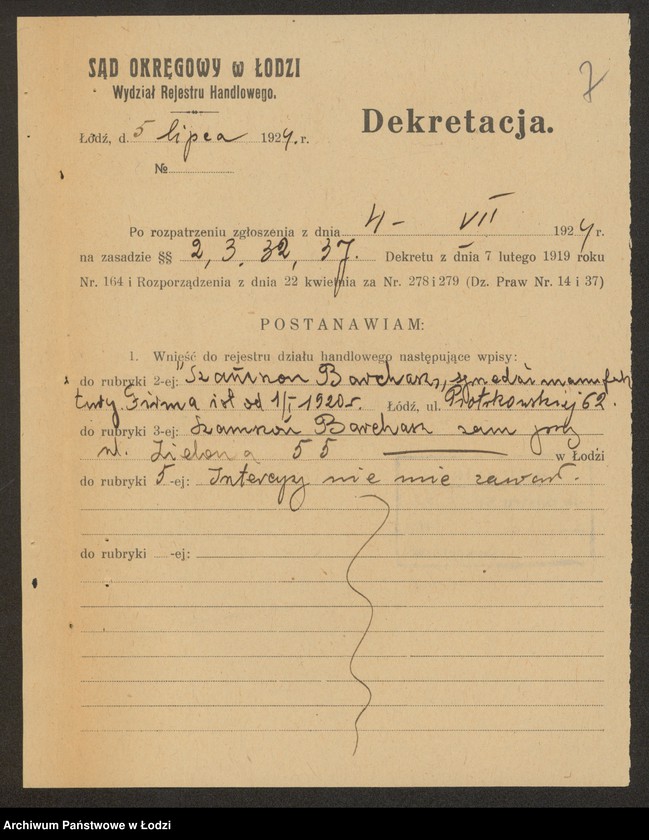 SĄD OKRĘGOWY w ŁODZI
Wydział Rejestru Handlowego.
7
Dekretacja.
Łódź, d. 5 lipca 1924. r.
№
Po rozpatrzeniu zgłoszenia z dnia 4- VII 1924 r.
na zasadzie §§ 2, 3, 32, 37. Dekretu z dnia 7 lutego 1919 roku
Nr. 164 i Rozporządzenia z dnia 22 kwietnia za Nr. 278 i 279 (Dz. Praw Nr. 14 i 37)
POSTANAWIAM:
1. Wnieść do rejestru działu handlowego następujące wpisy:
do rubryki 2-ej: Barchasz, manufak
tury. Firma istn. od 1/I 1920 r. Łódź, ul. Piotrkowskiej 62.
do rubryki 3-ej: Szamszon Barchasz zam przy
ul. Zielona 55 w Łodzi
do rubryki 5-ej: Intercyzy nie zawarł.
do rubryki -ej:
Archiwum Państwowe w Łodzi